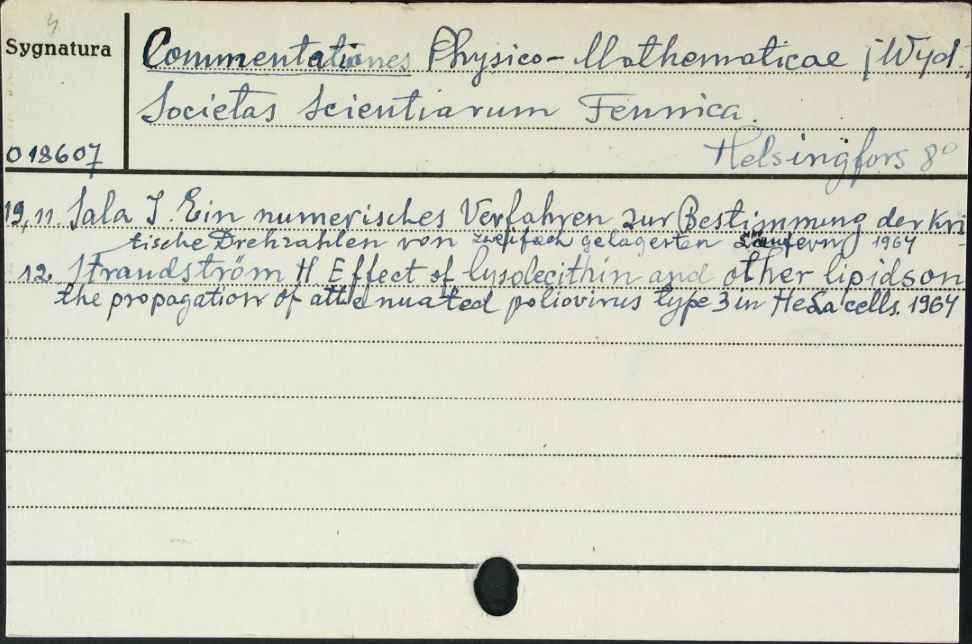 4
Sygnatura
Commentationes Physico-Mathematicae /Wyd.
Societas Scientiarum Fennica.
018607
Helsingfors 8°
19,11. Sala I. Ein numerisches Verfahren zur Bestimmung der kri
tische Drehzahlen von zweifach gelagerten Läufern 1964
12. Strandström H Effect of lysolecithin and other lipids on
the propagation of attenuated poliovirus type 3 in HeLa cells. 1964